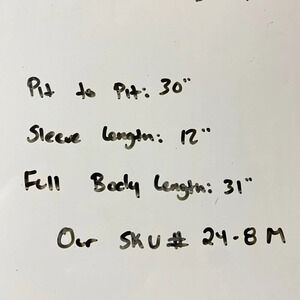 Pit to Pit: 30"
Sleeve Length: 12"
Full Body Length: 31"
Our SKU# 24-8 M